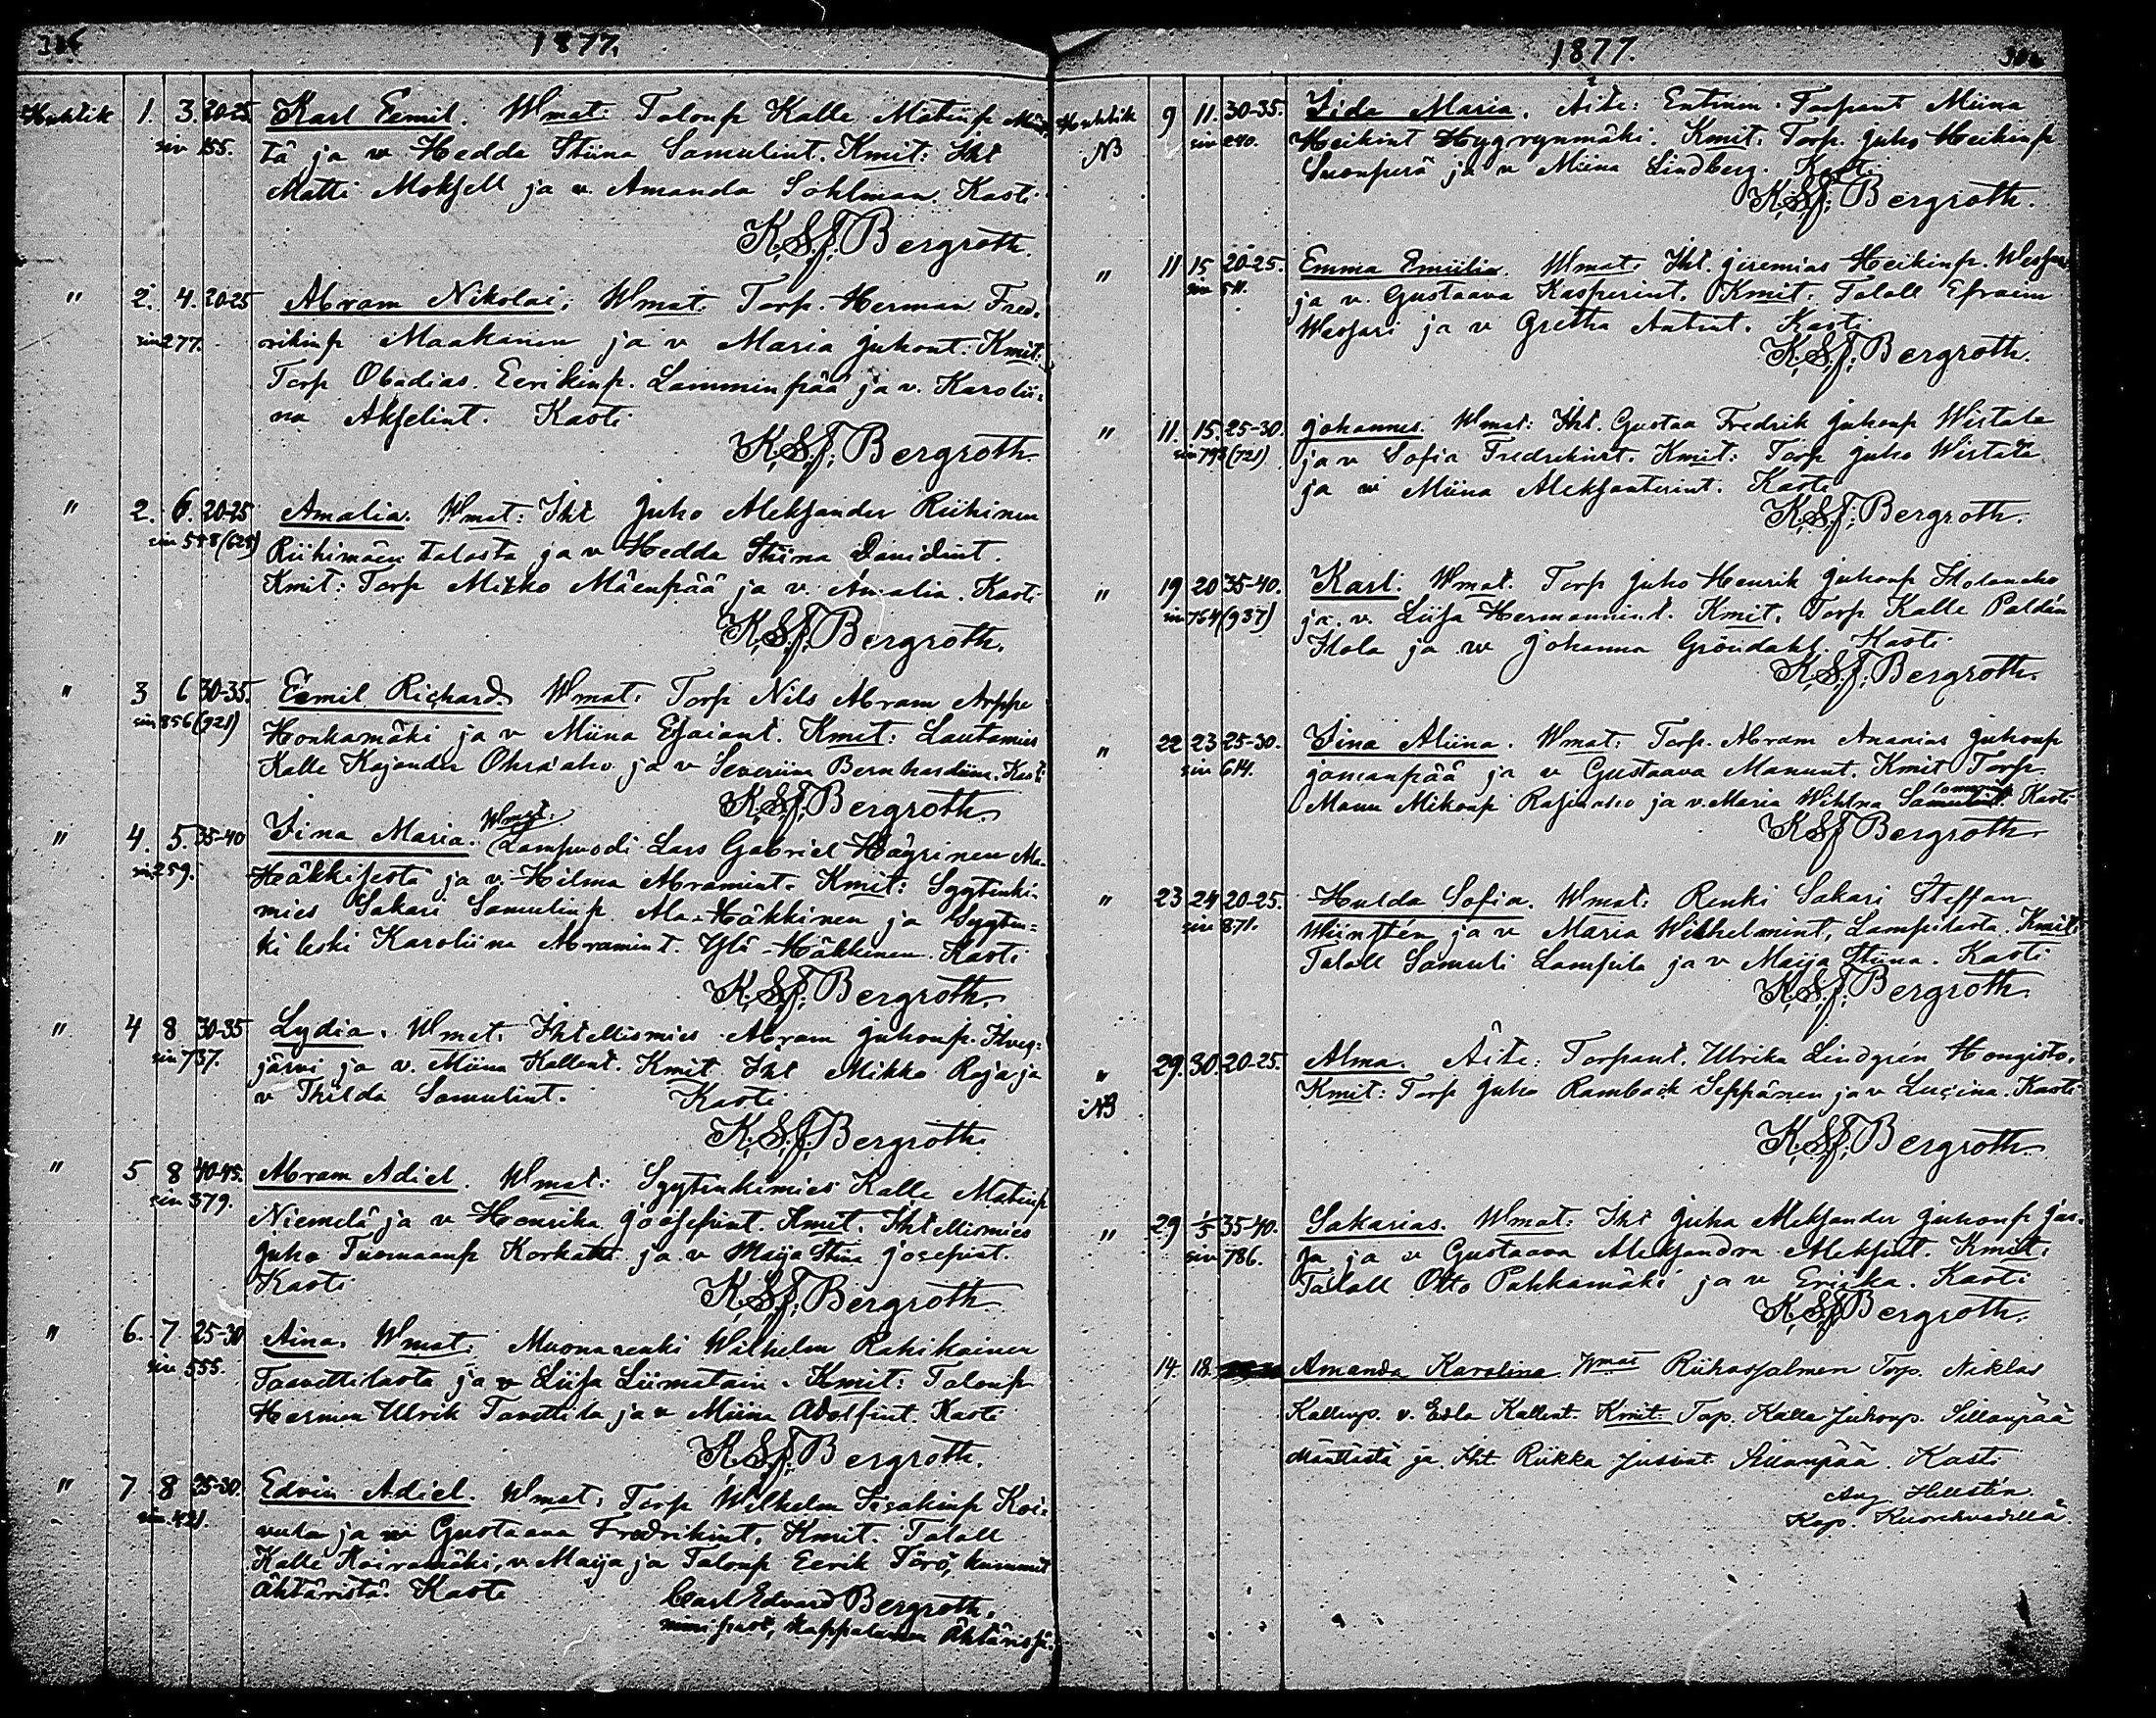 1877.
Huhtik 1. 3. 20-25 Karl Eemil. Wmat: Talonp Kalle Matinp
siv 155. tä ja v Hedda Stiina Samulint. Kmit: Iht
Matti Moksell ja v. Amanda Sohlman. Kasti
K. S. J. Bergroth.
" 2. 4. 20-25 Abram Nikolai. Wmat: Torp. Herman Fred-
siv 277. rikinp Maakanen ja v Maria Juhont: Kmit:
Torp Obadias Eerikinp. Lamminpää ja v. Karolii-
na Akselint. Kasti
K. S. J. Bergroth.
" 2. 6. 20-25 Amalia. Wmat: Iht Juho Aleksander Riihinen
Riihimäen talosta ja v Hedda Stiina Davidint.
Kmit: Torp Mikko Mäenpää ja v. Amalia. Kasti
K. S. J. Bergroth.
" 3 6 30-35. Eemil Richard. Wmat: Torp Nils Abram Arppe
siv 856 (921) Honkamäki ja v Miina Esaiant. Kmit: Lautamies
Kalle Kajander Ohra'aho ja v Severiina Bernhardiina. Kasti
K. S. J. Bergroth.
" 4. 5. 35-40 Iina Maria. Wmat: Lampuodi Lars Gabriel Häyrinen
siv 259. Häkkisestä ja v. Hilma Abramint. Kmit: Syytinki-
mies Sakari Samulinp Ala-Häkkinen ja Syytin-
ki leski Karoliina Abramint. Yli-Häkkinen. Kasti
K. S. J. Bergroth.
" 4 8 30-35 Lydia. Wmat: Ihtellismies Abram Juhonp.
siv 737. järvi ja v. Miina Kallent. Kmit Iht Mikko Raja ja
v Thilda Samulint. Kasti
K. S. J. Bergroth.
" 5 8 40-45. Abram Adiel. Wmat: Syytinkimies Kalle Matinp
siv 379. Niemelä ja v Henrika Joosefint. Kmit. Ihtellismies
Juho Tuomaanp ja v Maija Stiina Josepint.
Kasti
K. S. J. Bergroth
" 6. 7 25-30 Aina. Wmat: Muonarenki Wilhelm Rahikainen
siv 555. Taavettilasta ja v Liisa Liimatain. Kmit: Talonp
Herman Ulrik Tavettila ja v Miina Adolfint. Kasti
K. S. J. Bergroth.
" 7 8 25-30. Edvin Adiel. Wmat: Torp Wilhelm Iisakinp Koi-
vula ja v Gustaava Fredrikint. Kmit. Talall
Kalle Koiramäki, v. Maija ja Talonp Eerik Törö, kummit
Ähtäristä. Kaste
Carl Edvard Bergroth,
nimipast, kappalainen Ähtärissä.
1877.
Huhtik 9 11. 30-35. Iida Maria. Äite: Entinen Torpant Miina
NB Heikint Hyyrynmäki. Kmit. Torp. Juho Heikinp
Suonperä ja v Miina Lindberg. Kasti
K. S. J. Bergroth.
" 11 15 20-25. Emma Emiilia. Wmat. Iht. Jeremias Heikinp.
ja v. Gustaava Kasperint. Kmit. Talall Efraim
Wessari ja v Gretha Antint. Kasti
K. S. J. Bergroth.
" 11. 15. 25-30. Johannes. Wmat: Iht. Gustaa Fredrik Juhonp Wirtala
siv 793 (721) ja v Sofia Fredrikint. Kmit: Torp Juho Wirtala
ja v Miina Aleksanterint. Kaste
K. S. J. Bergroth.
" 19 20 35-40. Karl. Wmat. Torp Juho Henrik Juhonp
siv 764 (937) ja v. Liisa Hermannint. Kmit. Torp Kalle Paldán
ja v Johanna Gröndahl. Kasti
K. S. J. Bergroth.
" 22 23 25-30. Iina Aliina. Wmat: Torp. Abram Ananias Juhonp
siv 614. ja v Gustaava Manunt. Kmit Torp.
Manu Mikonp ja v. Maria Kasti
K. S. J. Bergroth.
" 23 24 20-25. Hulda Sofia. Wmat: Renki Sakari Steffan
siv 871. ja v Maria Wilhelmint, Lampilasta. Kmit:
Talall Samuli Lampila ja v Maija Stiina. Kasti
K. S. J. Bergroth.
" 29. 30. 20-25. Alma. Äite: Torpant. Ulrika Lindgrén Hongisto.
NB Kmit: Torp Juho Ramback Seppänen ja v Lusina. Kasti
K. S. J. Bergroth.
" 29 1/5 35-40. Sakarias. Wmat: Iht Juha Aleksander Juhonp
siv 786. ja v Gustaava Aleksandra Aleksint. Kmit:
Talall Otto Pahkamäki ja v Ericka. Kasti
K. S. J. Bergroth.
14. 18. Amanda Karolina. Wmat Torp. Niklas
Kallenp. v. Eedla Kallent. Kmit: Torp. Kalle Juhonp. Sillanpää
Mänttästä ja Iht Riikka Jussint Sillanpää. Kasti
Aug Hellstén
Kap. Kuorehvedellä.